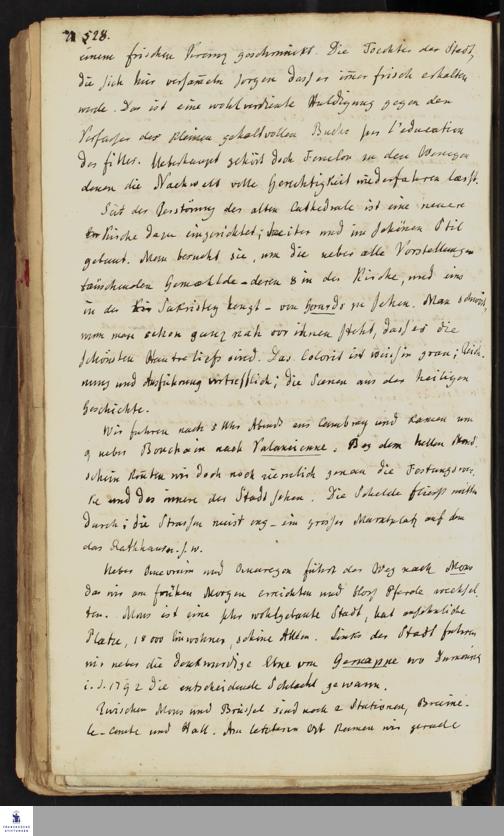 528.
einem frischen Kranz geschmückt. Die Toechter der Stadt,
die sich hier versam̅eln sorgen dass er im̅er frisch erhalten
werde. Das ist eine wohlverdiente Huldigung gegen den
Verfasser des kleinen gehaltvollen Buchs sur l'education
des filles. Ueberhaupt gehört doch Fenelon zu den Wenigen
denen die Nachwelt volle Gerechtigkeit wiederfahren laesst.
Seit der Zerstörung der alten Cathedrale ist eine neuere
Kirche dazu eingerichtet; heiter und im schönen Stil
gebaut. Man besucht sie, um die ueber alle Vorstellungen
täuschenden Gemaehlde - deren 8 in der Kirche, und eins
in der Sakristey hengt - von Gerards zu sehen. Man schwört,
wenn man schon ganz nah vor ihnen steht, dass es die
schönsten Hautreliefs sind. Das Colorit ist weiss in grau; Zeich-
nung und Ausführung vortrefflich; die Scenen aus der heiligen
Geschichte.
Wir fuhren nach 5 Uhr Abends aus Cambray und kamen um
9 ueber Bouchain nach Valencienne. Bey dem hellen Mond-
schein konten wir doch noch ziemlich genau die Festungswer-
ke und das innere der Stadt sehen. Die Schelde fliesst mitten
durch; die Strassen meist eng - ein grosser Marcktplatz auf dem
das Rathhaus u.s.w.
Ueber Quievrain und Quaregon führt der Weg nach Mons
das wir am frühen Morgen erreichten und bloss Pferde wechsel-
ten. Mons ist eine sehr wohlgebaute Stadt, hat ansehnliche
Plätze, 18 000 Einwohner, schöne Alleen. Links der Stadt fuhren
wir ueber die denkwürdige Ebne von Gemappe wo Dumouriez
i. J. 1792 die entscheidende Schlacht gewann.
Zwischen Mons und Brüssel sind noch 2 Stationen, Braine-
le-Comte und Hall. Am letzteren Ort kamen wir gerade